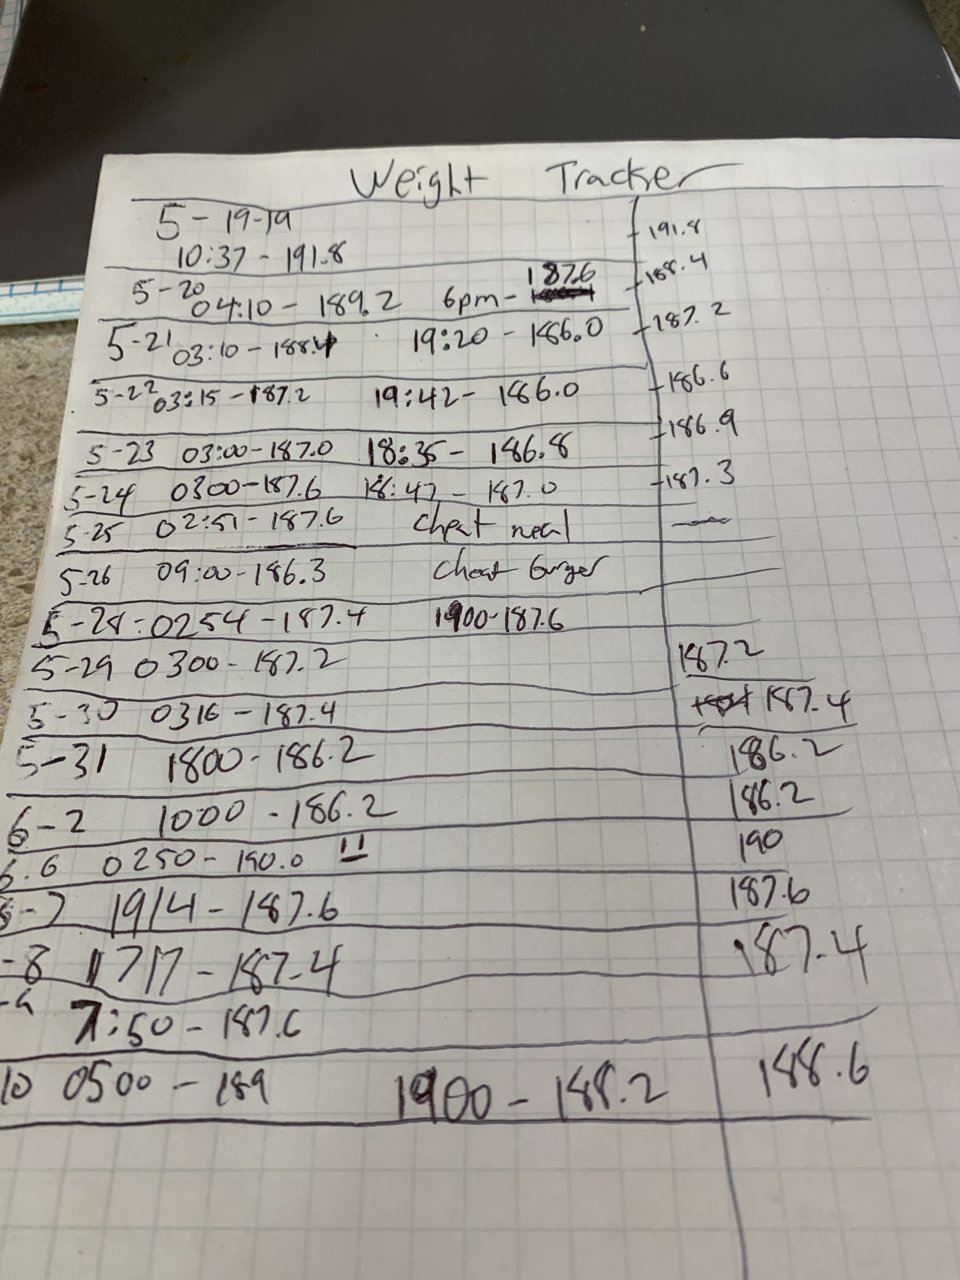 Weight Tracker
5-19-19
10:37 - 191.8 191.8
5-20 04:10 - 189.2 6pm - 187.6 188.4
5-21 03:10 - 188.4 19:20 - 186.0 187.2
5-22 03:15 - 187.2 19:42 - 186.0 186.6
5-23 03:00 - 187.0 18:35 - 186.8 186.9
5-24 0300 - 187.6 18:47 - 187.0 187.3
5-25 02:51 - 187.6 cheat meal
5-26 09:00 - 186.3 cheat burger
5-28: 0254 - 187.4 1900 - 187.6
5-29 0300 - 187.2 187.2
5-30 0316 - 187.4 187.4
5-31 1800 - 186.2 186.2
6-2 1000 - 186.2 186.2
6.6 0250 - 190.0 !! 190
-7 1914 - 187.6 187.6
-8 1717 - 187.4 187.4
-9 7:50 - 187.6
10 0500 - 189 1900 - 188.2 188.6